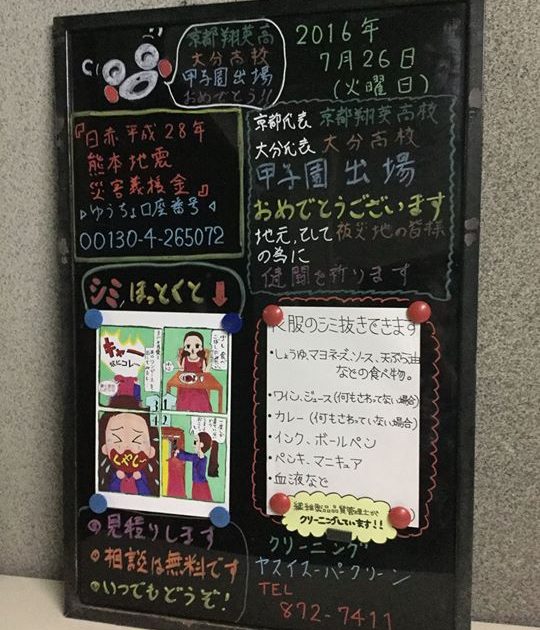 京都翔英高
大分高校
甲子園出場
おめでとう!!
2016年
7月26日
(火曜日)
『日赤平成28年
熊本地震
災害義援金』
▷ゆうちょ口座番号◁
00130-4-265072
京都代表 京都翔英高校
大分代表 大分高校
甲子園出場
おめでとうございます
地元、そして被災地の皆様
の為に
健闘を祈ります
シミ、ほっとくと↓
キャー
なにコレ〜
1
2
3
4
くやし〜
衣服のシミ抜きできます
・しょうゆ、マヨネーズ、ソース、天ぷら油
などの食べ物。
・ワイン、ジュース(何もさわっていない場合)
・カレー(何もさわっていない場合)
・インク、ボールペン
・ペンキ、マニキュア
・血液など
繊維製品品質管理士が
クリーニングしています!!
●見積りします
●相談は無料です
●いつでもどうぞ!
クリーニング
ヤスイスーパークリーン
TEL
872-7411